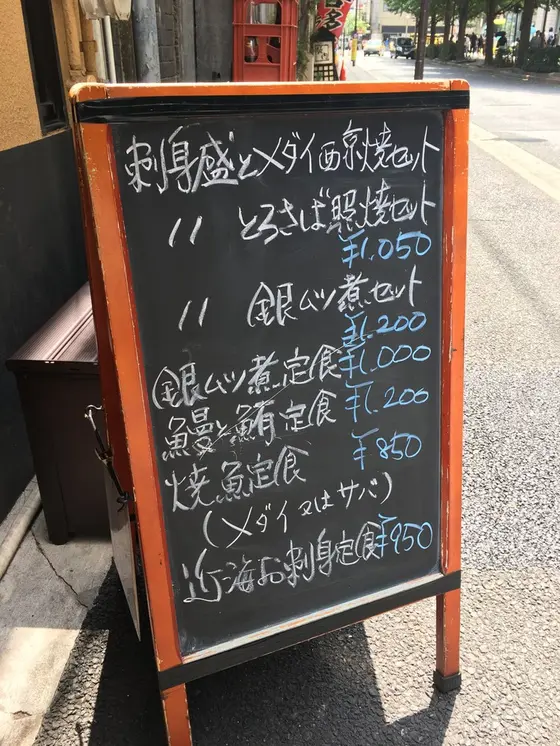 刺身盛とメダイ西京焼セット
〃 とろさば照焼セット
¥1,050
〃 銀ムツ煮セット
¥1,200
銀ムツ煮定食 ¥1,000
鰻と鮪定食 ¥1,200
焼魚定食 ¥850
(メダイ又はサバ)
近海お刺身定食 ¥950